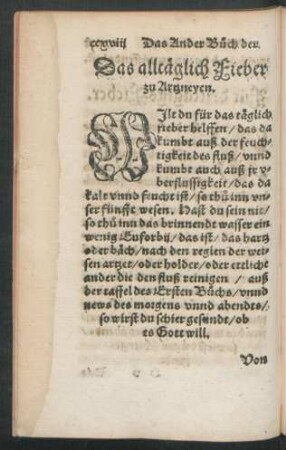 ccxviij Das Ander Bůch der
Das alltäglich Fieber
zu Artzneyen.
WIlt du für das täglich
fieber helffen / das da
kumbt auß der feuch-
tigkeit des fluß / vnnd
kumbt auch auß jr v-
berflussigkeit / das da
kalt vnnd feucht ist / so thů inn vn-
ser fünfft wesen. Hast du sein nit /
so thů inn das brinnendt wasser ein
wenig Euforbij / das ist / das hartz
oder bäch / nach den reglen der wei-
sen artzet / oder holder / oder ettliche
ander die den fluß reinigen / auß
der taffel des Ersten Bůchs / vnnd
news des morgens vnnd abendts /
so wirst du schier gesundt / ob
es Gott will.
Von